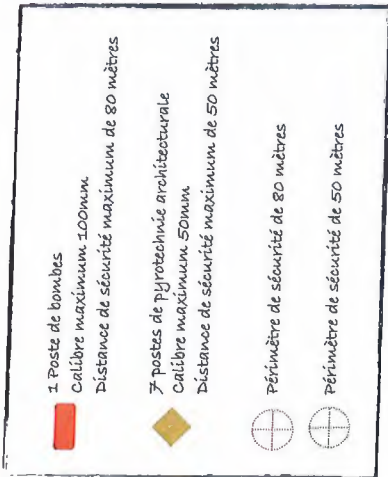 1 Poste de bombes
Calibre maximum 100mm
Distance de sécurité maximum de 80 mètres
7 postes de pyrotechnie architecturale
Calibre maximum 50mm
Distance de sécurité maximum de 50 mètres
Périmètre de sécurité de 80 mètres
Périmètre de sécurité de 50 mètres